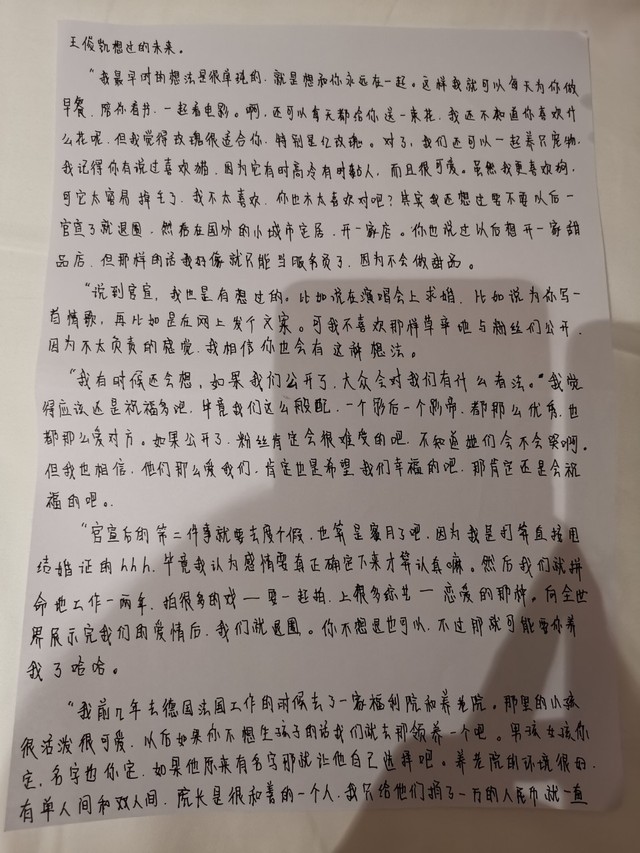 王俊凯想过的未来。
“我最平时的想法是很单纯的，就是想和你永远在一起。这样我就可以每天为你做
早餐，陪你看书，一起看电影。啊，还可以每天都给你送一束花，我还不知道你喜欢什
么花呢，但我觉得玫瑰很适合你，特别是红玫瑰。对了，我们还可以一起养只宠物，
我记得你有说过喜欢猫，因为它有时高冷有时黏人，而且很可爱。虽然我更喜欢狗，
可它太容易掉毛了，我不太喜欢，你也不太喜欢对吧？其实我还想过要不要以后一
官宣了就退圈，然后在国外的小城市定居，开一家店。你也说过以后想开一家甜
品店，但那样的话我好像就只能当服务员了，因为不会做甜品。
“说到官宣，我也是有想过的。比如说在演唱会上求婚，比如说为你写一
首情歌，再比如是在网上发个文案。可我不喜欢那样草率地与粉丝们公开，
因为不太负责的感觉，我相信你也会有这种想法。
“我有时候还会想，如果我们公开了，大众会对我们有什么看法。“我觉
得应该还是祝福多吧，毕竟我们这么般配，一个影后一个影帝，都那么优秀，也
都那么爱对方。如果公开了，粉丝肯定会很难受的吧，不知道她们会不会哭啊。
但我也相信，他们那么爱我们，肯定也是希望我们幸福的吧，那肯定还是会祝
福的吧。
“官宣后的第二件事就要去度个假，也算是蜜月了吧，因为我是打算直接甩
结婚证的hhh，毕竟我认为感情要真正确定下来才算认真嘛。然后我们就拼
命地工作一两年，拍很多的戏—要一起拍，上很多综艺—恋爱的那种。向全世
界展示完我们的爱情后，我们就退圈。你不想退也可以，不过那就可能要你养
我了哈哈。
“我前几年去德国法国工作的时候去了一家福利院和养老院。那里的小孩
很活泼很可爱，以后如果你不想生孩子的话我们就去那领养一个吧。男孩女孩你
定，名字也你定，如果他原来有名字那就让他自己选择吧。养老院的环境很好，
有单人间和双人间，院长是很和善的一个人，我只给他们捐了一万的人民币就一直